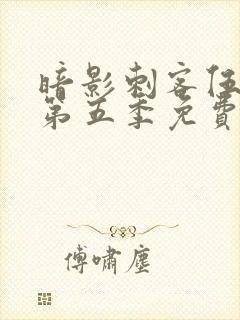 暗影刺客伍
第五季免費
傅嘯塵